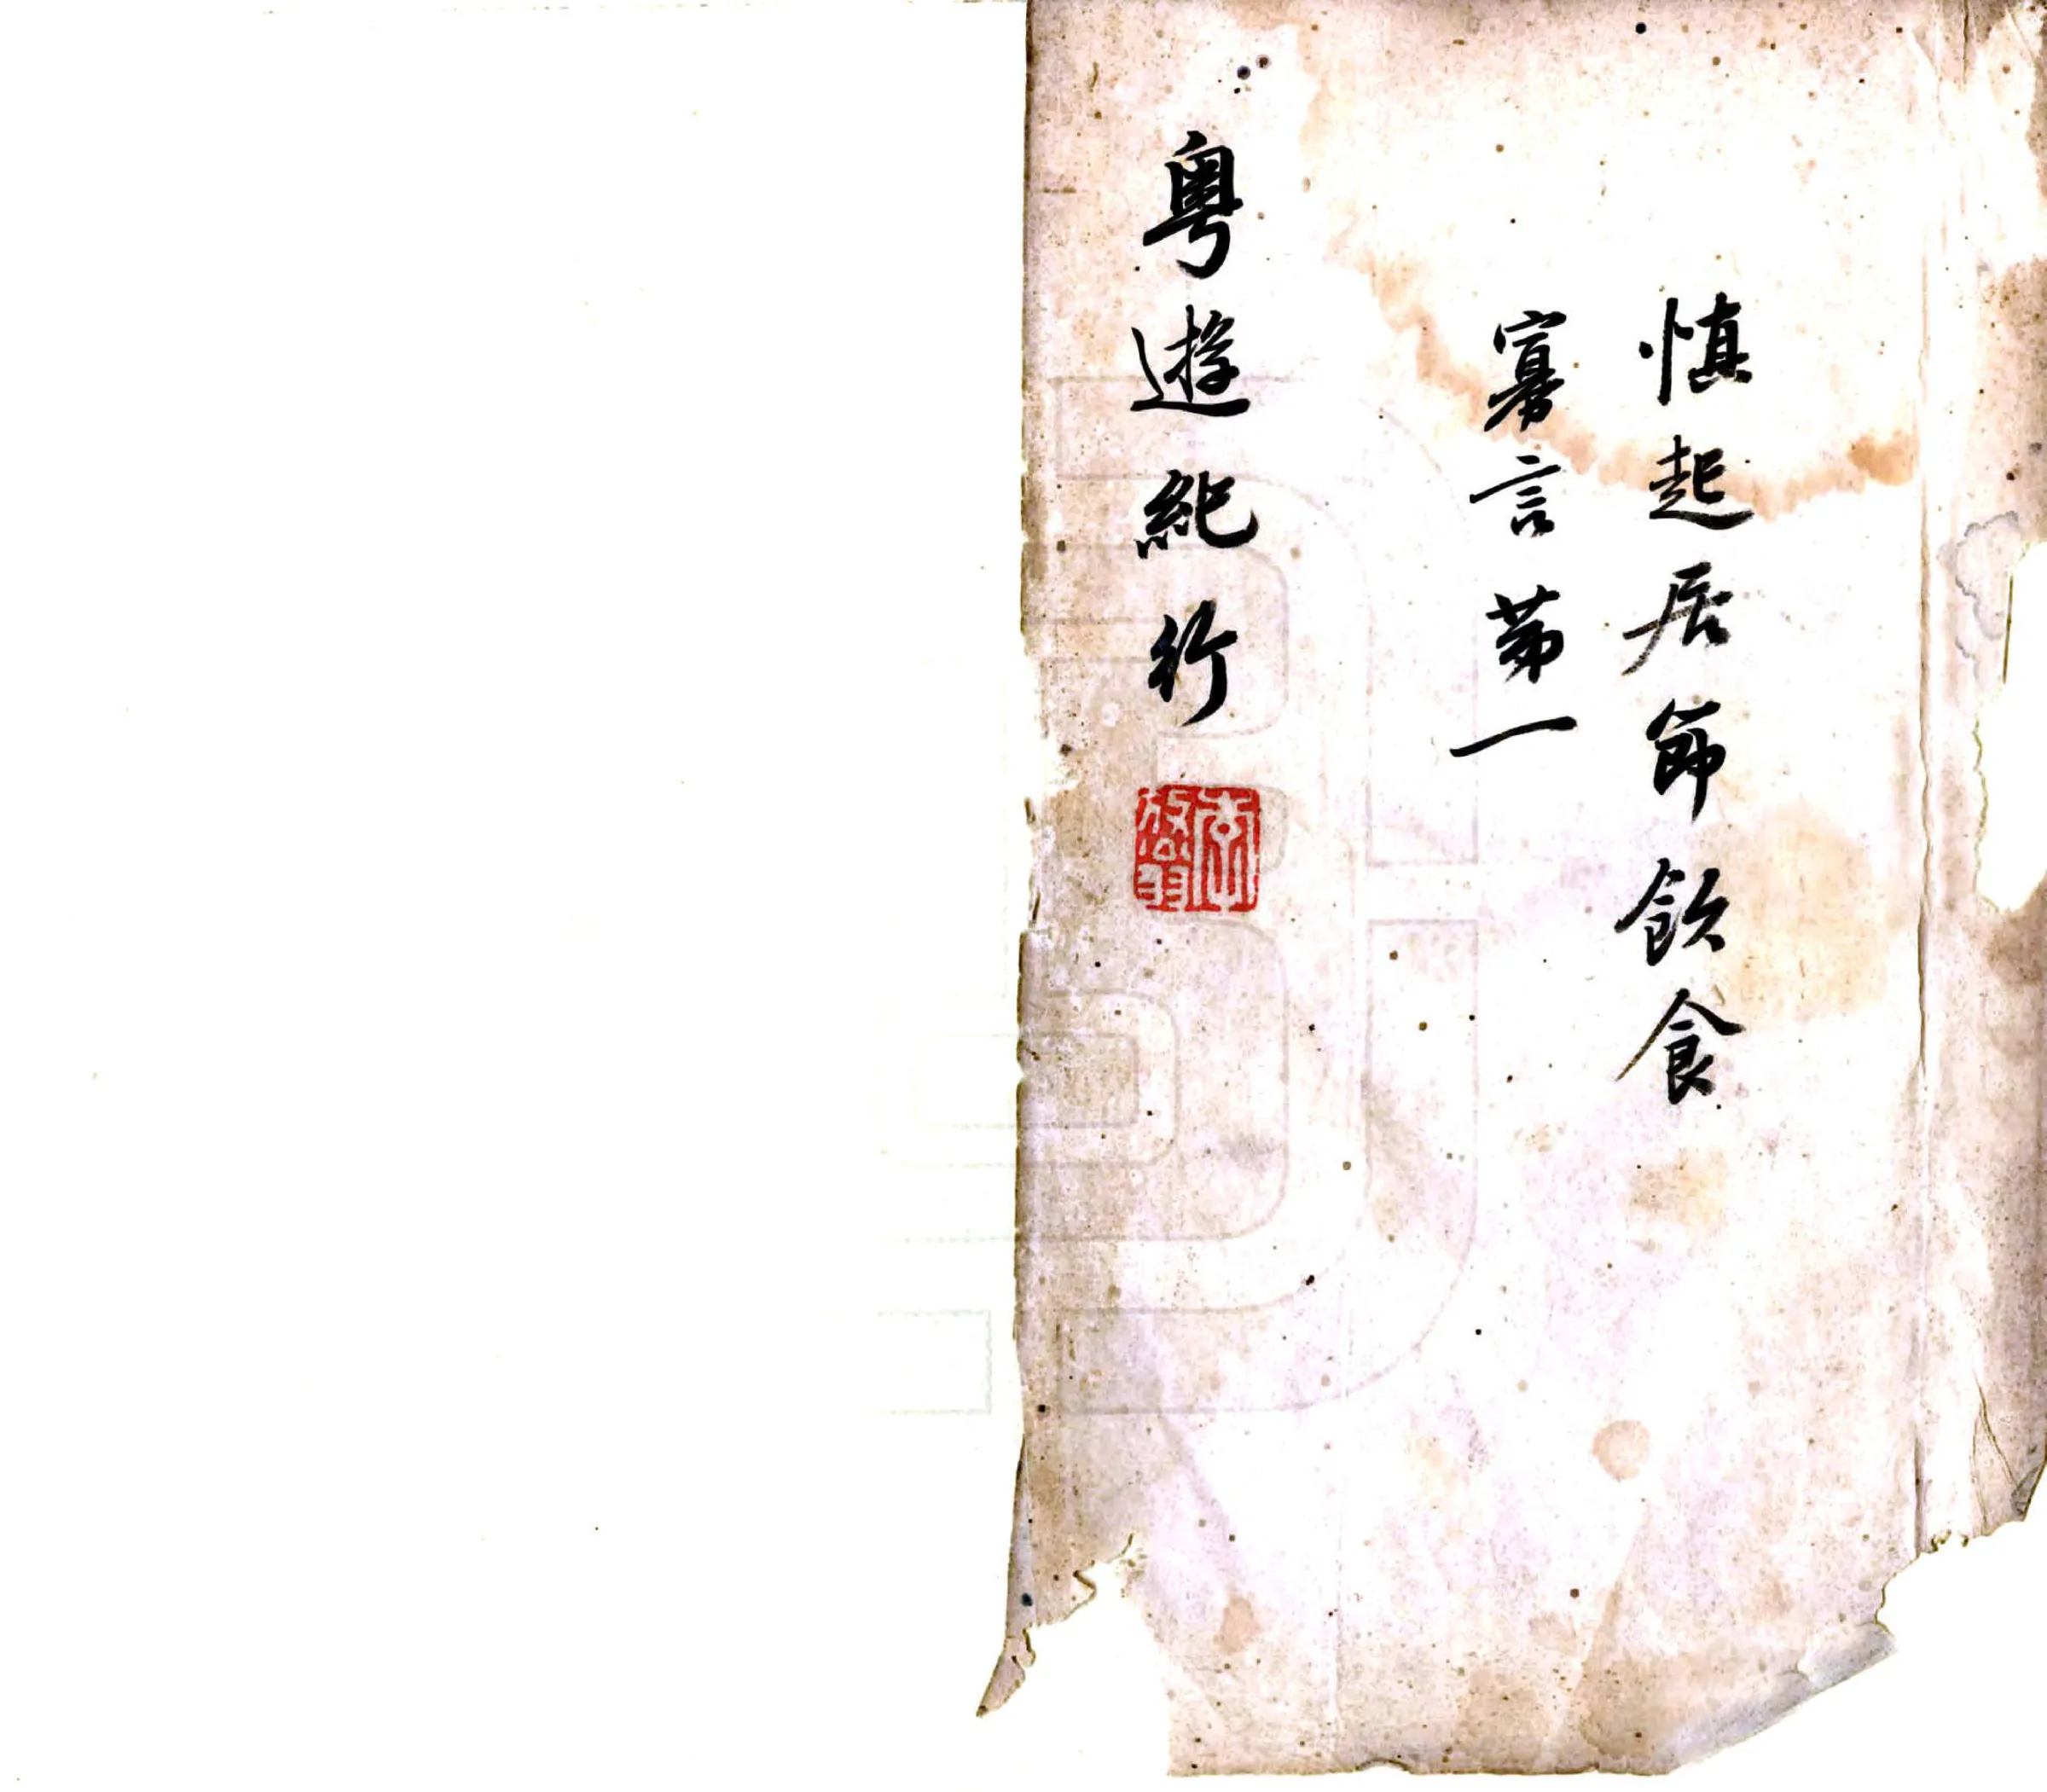 慎起居節飲食
寡言第一
粵遊紀行